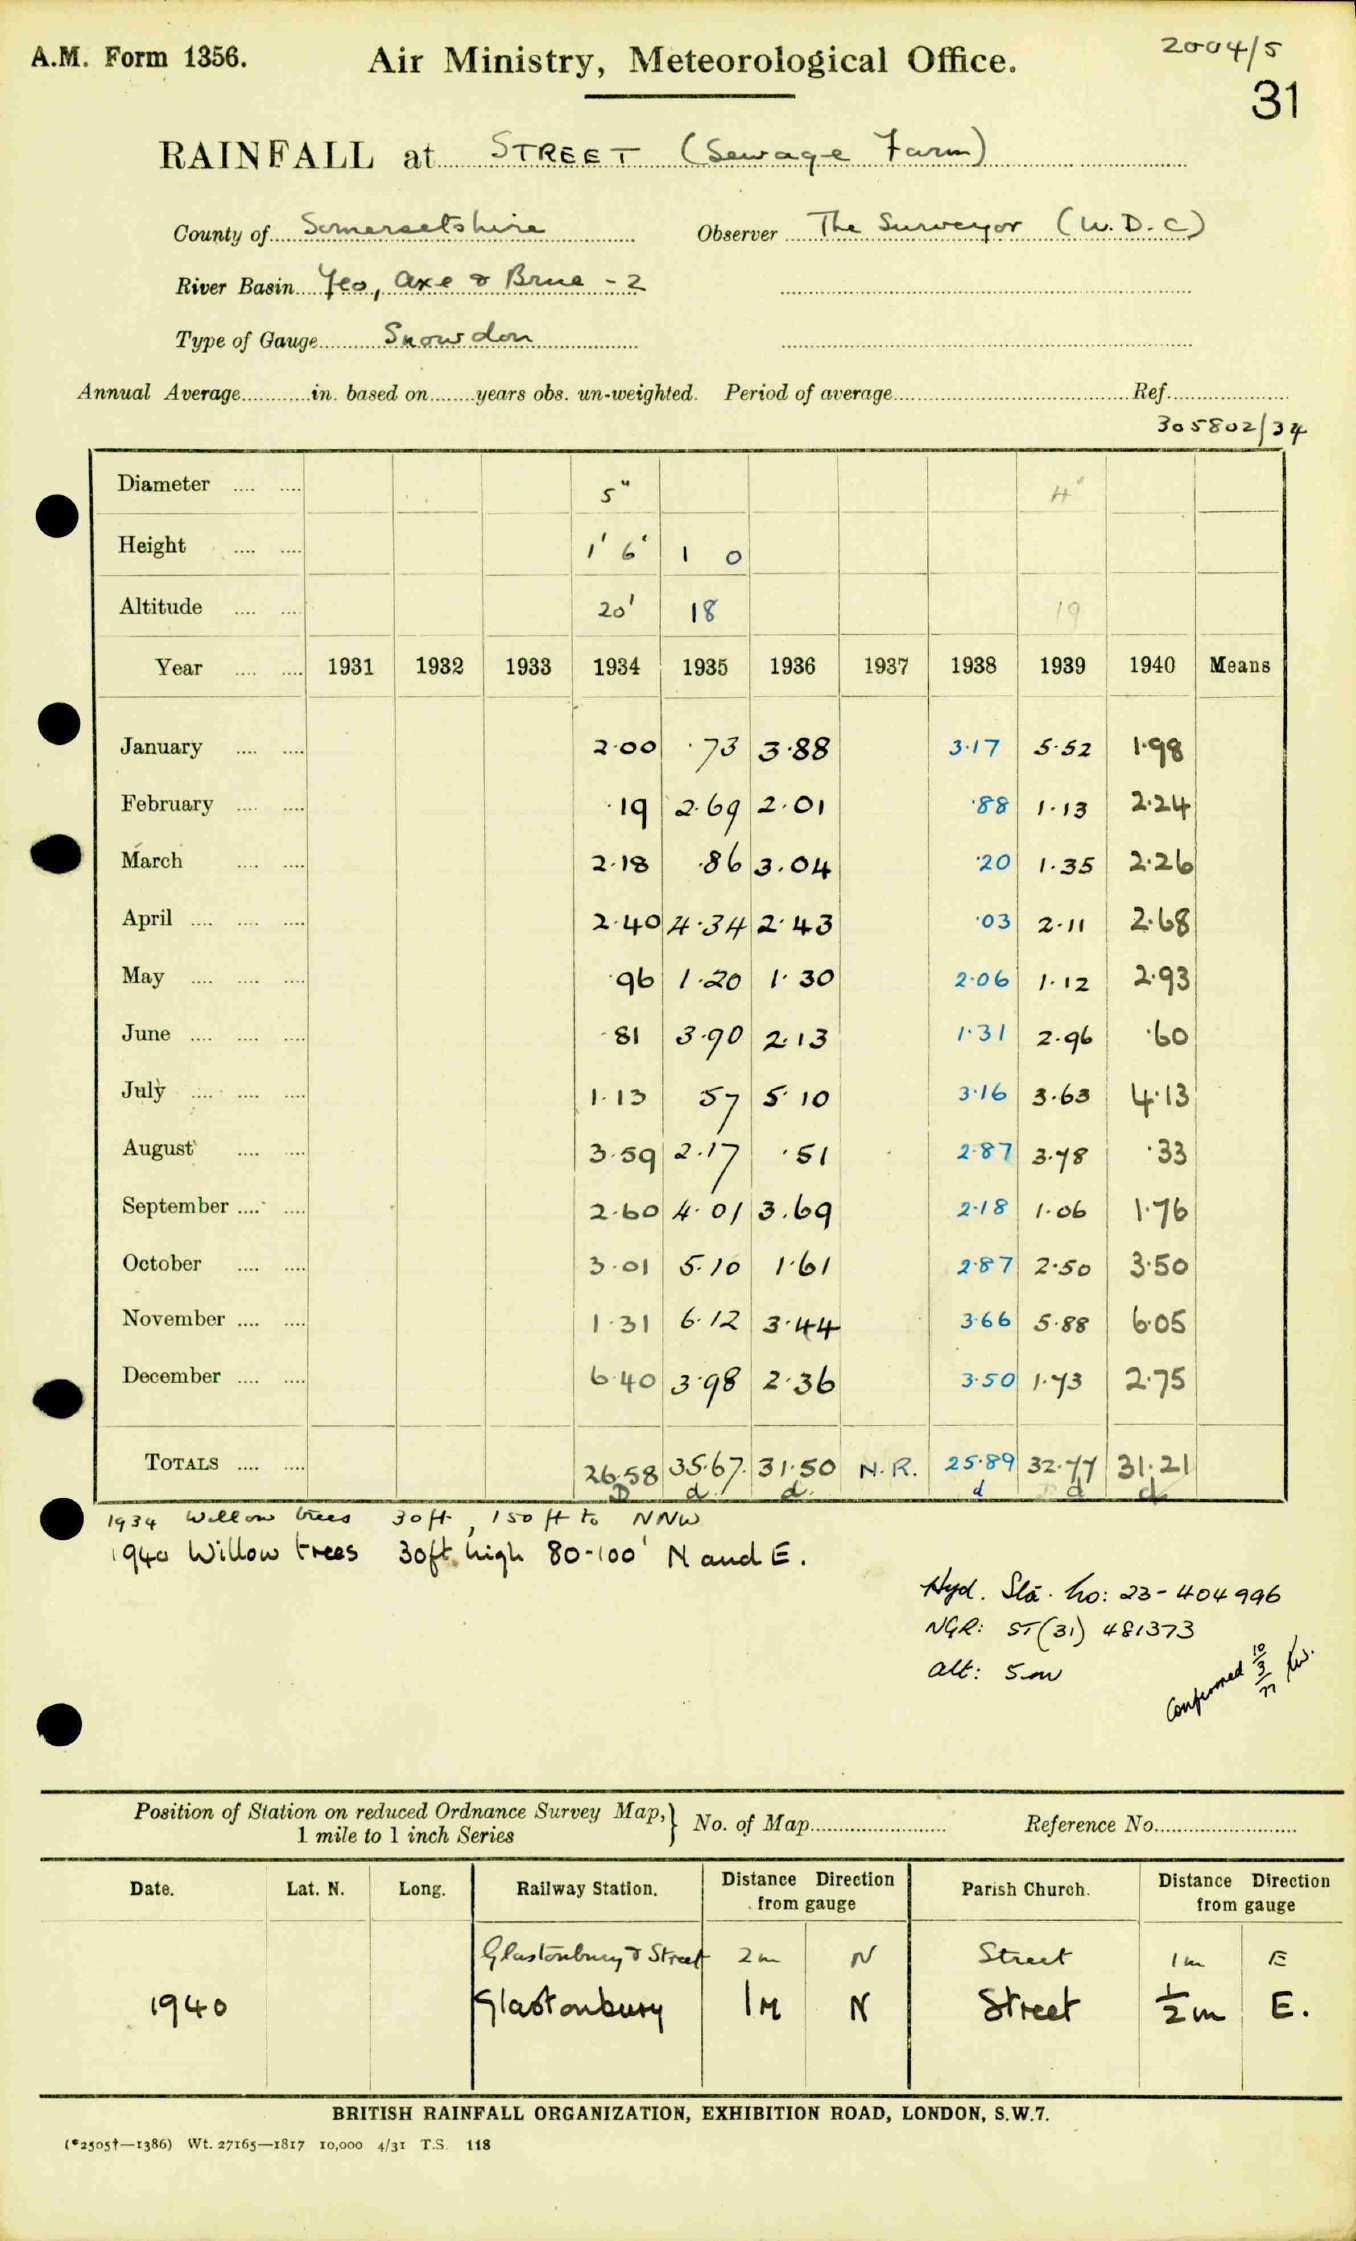 A.M. Form 1356. Air Ministry, Meteorological Office. 2004/5
31
RAINFALL at STREET (Sewage Farm)
County of Somersetshire Observer The Surveyor (W.D.C)
River Basin Yeo, Axe & Brue - 2
Type of Gauge Snowdon
Annual Average in. based on years obs. un-weighted. Period of average Ref.
305802/34
Diameter 5" 4"
Height 1' 6" 1 0
Altitude 20' 18 19
Year 1931 1932 1933 1934 1935 1936 1937 1938 1939 1940 Means
January 2.00 .73 3.88 3.17 5.52 1.98
February .19 2.69 2.01 .88 1.13 2.24
March 2.18 .86 3.04 .20 1.35 2.26
April 2.40 4.34 2.43 .03 2.11 2.68
May .96 1.20 1.30 2.06 1.12 2.93
June .81 3.90 2.13 1.31 2.96 .60
July 1.13 57 5.10 3.16 3.63 4.13
August 3.59 2.17 .51 2.87 3.78 .33
September 2.60 4.01 3.69 2.18 1.06 1.76
October 3.01 5.10 1.61 2.87 2.50 3.50
November 1.31 6.12 3.44 3.66 5.88 6.05
December 6.40 3.98 2.36 3.50 1.73 2.75
TOTALS 26.58 35.67. 31.50 N.R. 25.89 32.77 31.21
D d. d. d d d
1934 Willow trees 30ft, 150 ft to NNW
1940 Willow trees 30ft high 80-100' N and E.
Hyd. Sta. No: 23-404996
NGR: ST(31) 481373
alt: 5m
Confirmed 10/3/77
Position of Station on reduced Ordnance Survey Map, } No. of Map Reference No.
1 mile to 1 inch Series
Date. Lat. N. Long. Railway Station. Distance Direction from gauge Parish Church. Distance Direction from gauge
Glastonbury & Street 2m N Street 1m E
1940 Glastonbury 1M N Street ½m E.
BRITISH RAINFALL ORGANIZATION, EXHIBITION ROAD, LONDON, S.W.7.
(*2505†—1386) Wt. 27165—1817 10,000 4/31 T.S. 118